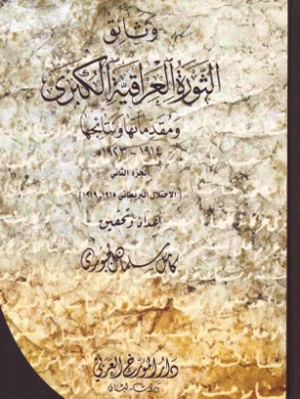 وثائق
الثورة العراقية الكبرى
ومقدماتها ونتائجها
١٩١٤ - ١٩٢٣م
الجزء الثاني
(الاحتلال البريطاني ١٩١٥ - ١٩١٩)
إعداد وتحقيق
كامل سلمان الجبوري
دار المؤرخ العربي
بيروت - لبنان